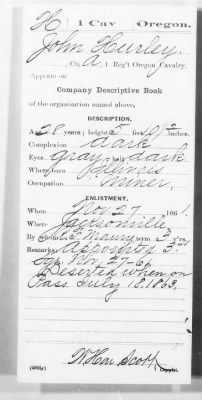 H | 1 Cav | Oregon.
John Hurley.
, Co. A, 1 Reg't Oregon Cavalry.
Appears on
Company Descriptive Book
of the organization named above,
DESCRIPTION.
Age 28 years; height 5 feet inches.
Complexion dark
Eyes gray; hair dark
Where born Illinois
Occupation miner,
ENLISTMENT.
When Nov. 27, 1861.
Where Jacksonville,
By whom term 3 y'rs
Remarks Appointed 5"
Sgt. Nov. 27-61
Deserted when on
Pass. July 18. 1863.
Scott
Copyist.